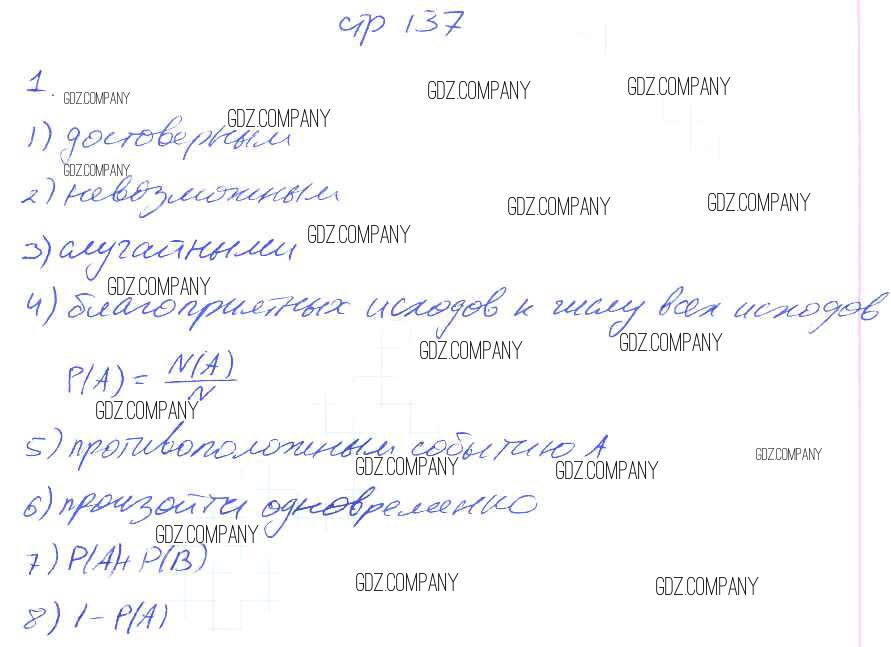 стр 137
1.
GDZ.COMPANY GDZ.COMPANY GDZ.COMPANY
GDZ.COMPANY
1) достоверным
GDZ.COMPANY
2) невозможным
GDZ.COMPANY GDZ.COMPANY
3) случайными GDZ.COMPANY
GDZ.COMPANY
4) благоприятных исходов к числу всех исходов
GDZ.COMPANY GDZ.COMPANY
P(A) = N(A)/N
GDZ.COMPANY
5) противоположным событию А
GDZ.COMPANY GDZ.COMPANY GDZ.COMPANY
6) произойти одновременно
GDZ.COMPANY
7) P(A)+P(B)
GDZ.COMPANY GDZ.COMPANY
8) 1-P(A)